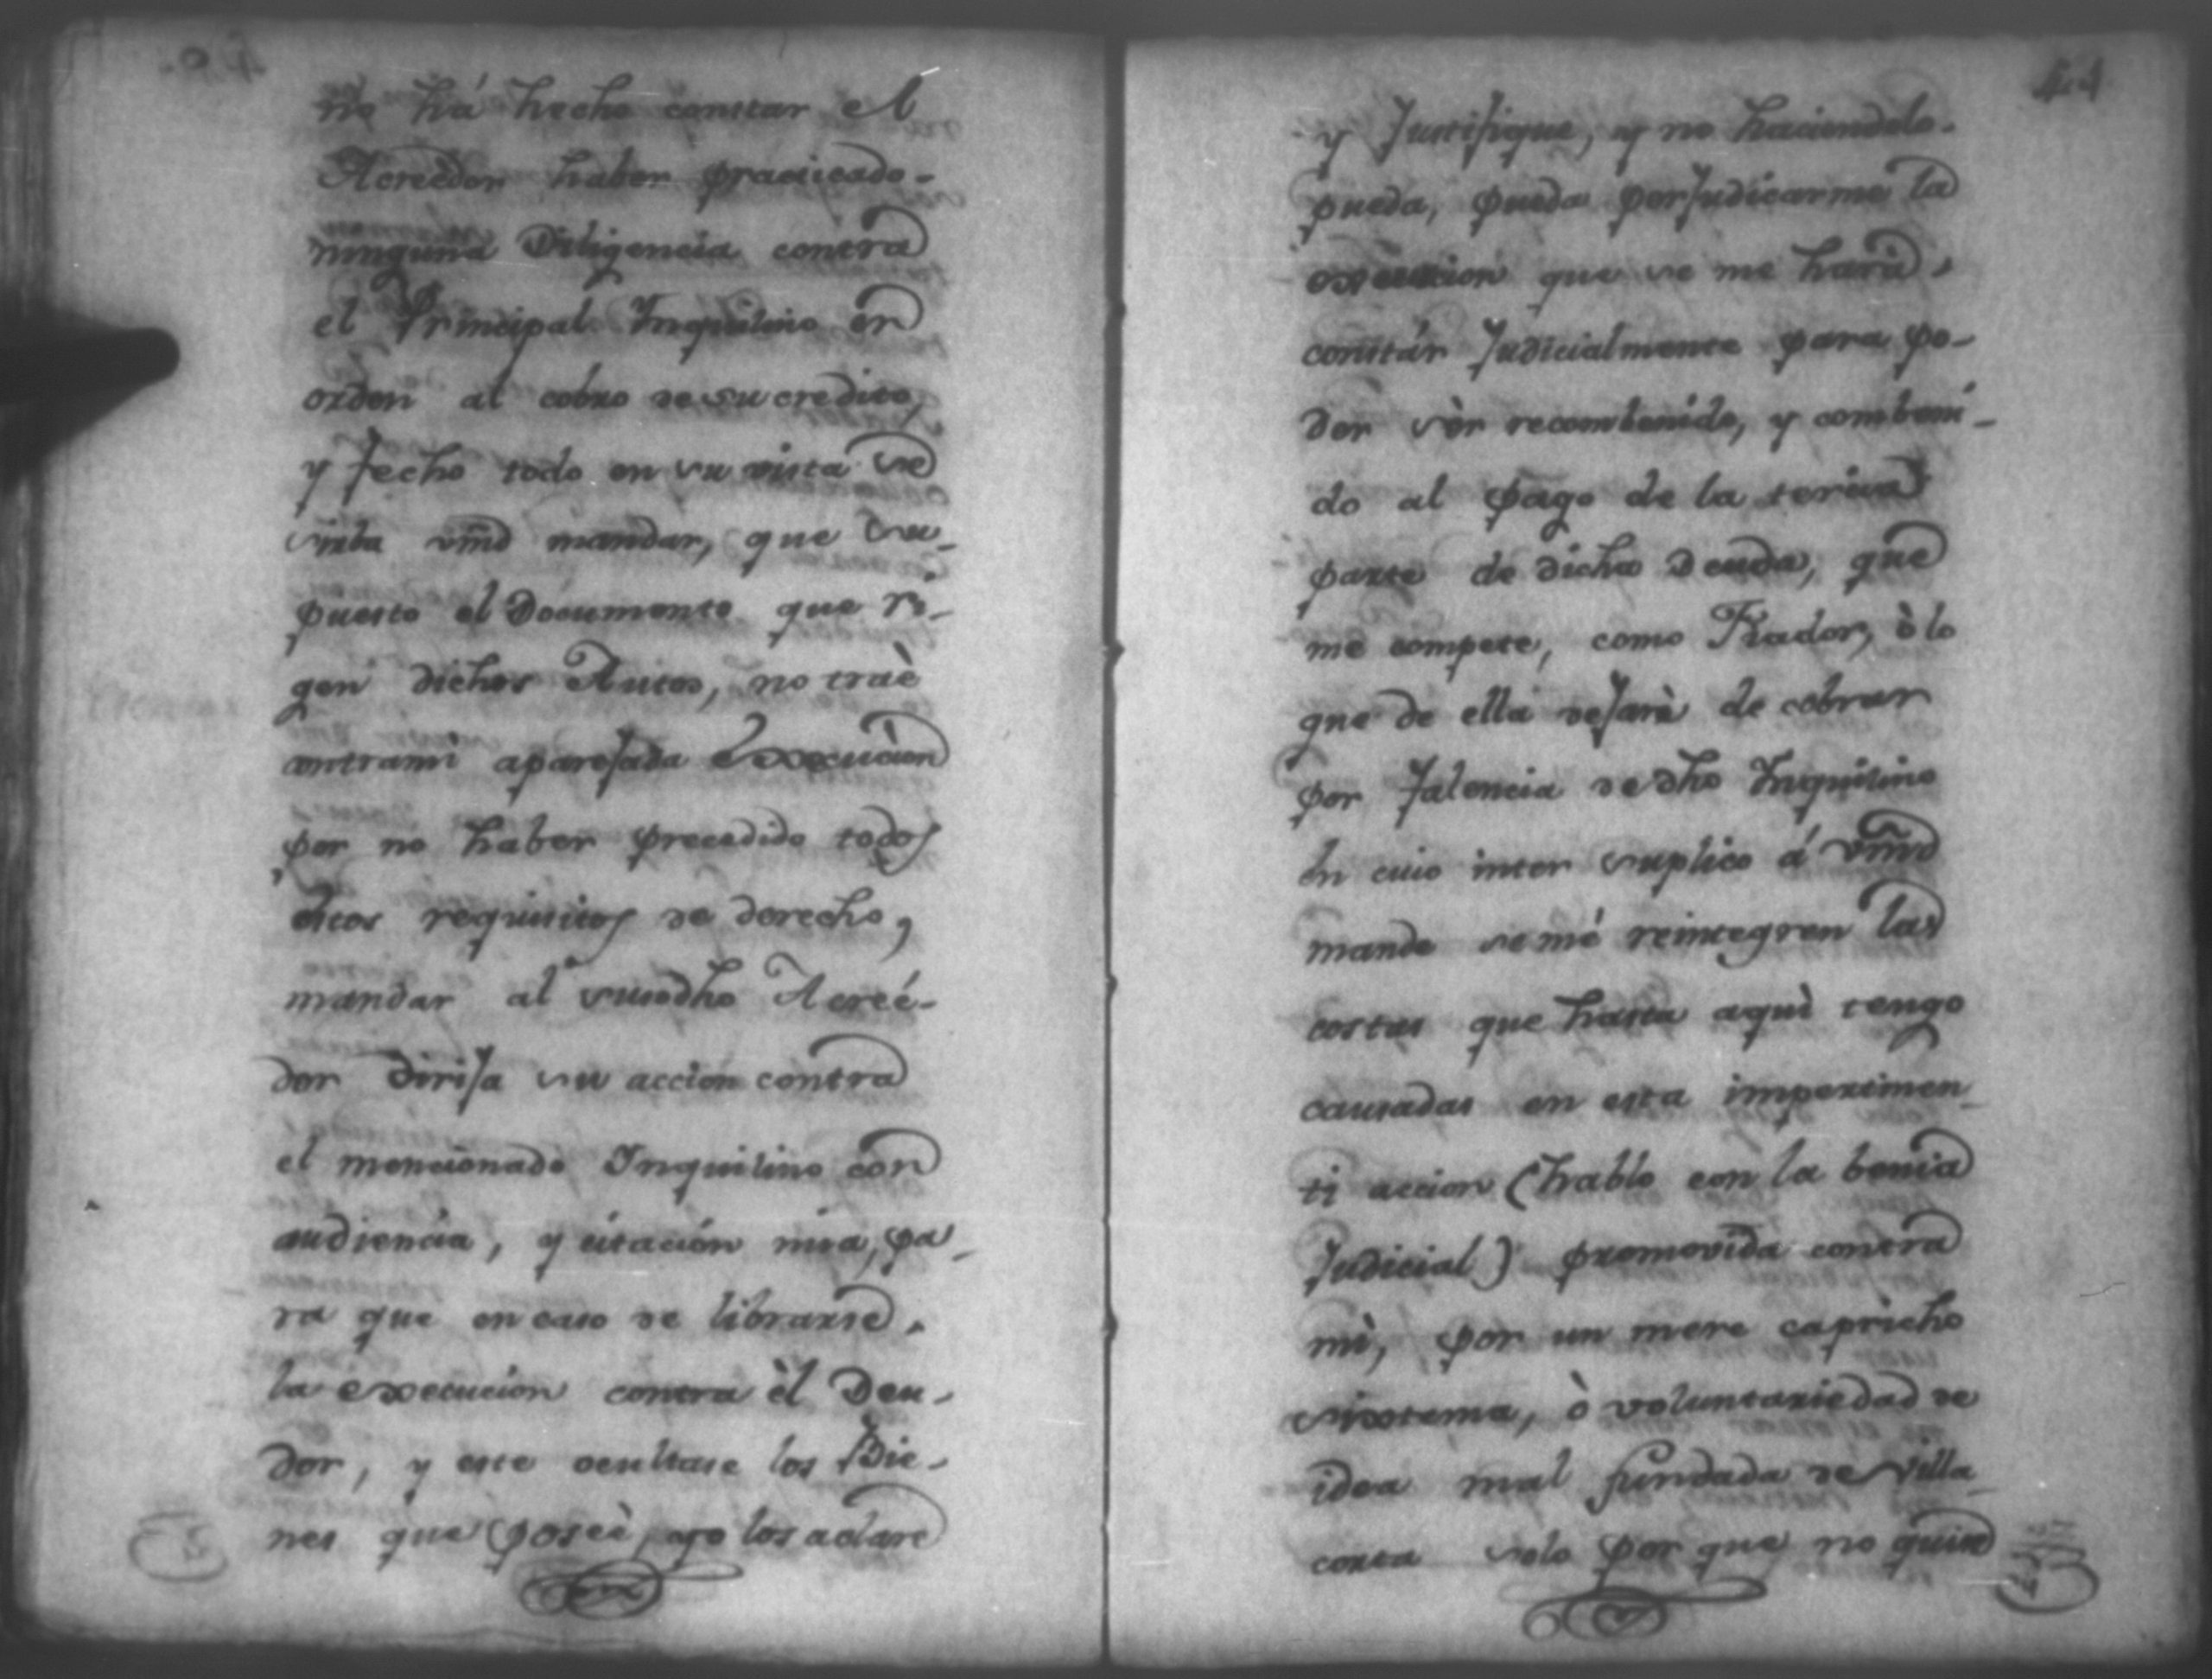 no há hecho constar el
Acreedor haber practicado-
ninguna Diligencia contra
el Principal Inquilino en
orden al cobro de su credito,
y fecho todo en su vista se
sirba vmd mandar, que su-
puesto el Documento que ri-
gen dichos Autos, no traè
contrami aparejada Execucion
por no haber precedido todos
estos requisitos de derecho,
mandar al susodho Acreé-
dor dirija su accion contra
el mencionado Inquilino con
audiencia, y citacion mia, pa-
ra que en caso de librarse
la execucion contra èl Deu-
dor, y este ocultase los Bie-
nes que poseè, yo los aclare
41
y Justifique, y no haciendolo-
pueda, pueda perjudicarme la
execucion que se me hará
constár Judicialmente para po-
der sèr recombenido, y combeni-
do al pago de la tercia
parte de dicha Deuda, que
me compete, como Fiador, ò lo
que de ella dejarà de cobrar
por falencia de dho Inquilino
En cuio inter suplico á Vmd
mande semé reintegren las
costas que hasta aquì tengo
causadas en esta impertinen-
te accion (hablo con la benia
Judicial) promovida contra
mì, por un mere capricho
sixtema, ò voluntariedad de
idea mal fundada de Villa-
corta solo por que no quise